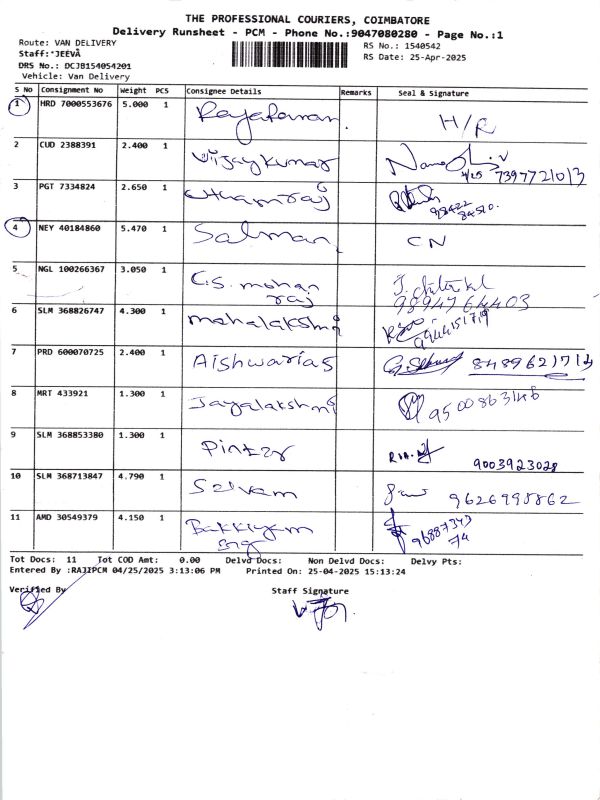 THE PROFESSIONAL COURIERS, COIMBATORE
Delivery Runsheet - PCM - Phone No.:9047080280 - Page No.:1
Route: VAN DELIVERY
RS No.: 1540542
Staff:*JEEVÂ
RS Date: 25-Apr-2025
DRS No.: DCJB154054201
Vehicle: Van Delivery
S No Consignment No Weight PCS Consignee Details Remarks Seal & Signature
1 HRD 7000553676 5.000 1 H/R
2 CUD 2388391 2.400 1 Vijaykumar 7397721013
3 PGT 7334824 2.650 1 98422
84510.
4 NEY 40184860 5.470 1 Salman CN
5 NGL 100266367 3.050 1 C.S. mohan
raj 9894764403
6 SLM 368826747 4.300 1 mahalakshmi
7 PRD 600070725 2.400 1 Aishwarias 8489621713
8 MRT 433921 1.300 1 Jayalakshmi 9500863146
9 SLM 368853380 1.300 1 9003923028
10 SLM 368713847 4.790 1 Selvam 9626995862
11 AMD 30549379 4.150 1 96887343
74
Tot Docs: 11 Tot COD Amt: 0.00 Delvd Docs: Non Delvd Docs: Delvy Pts:
Entered By :RAJIPCM 04/25/2025 3:13:06 PM Printed On: 25-04-2025 15:13:24
Verified By Staff Signature